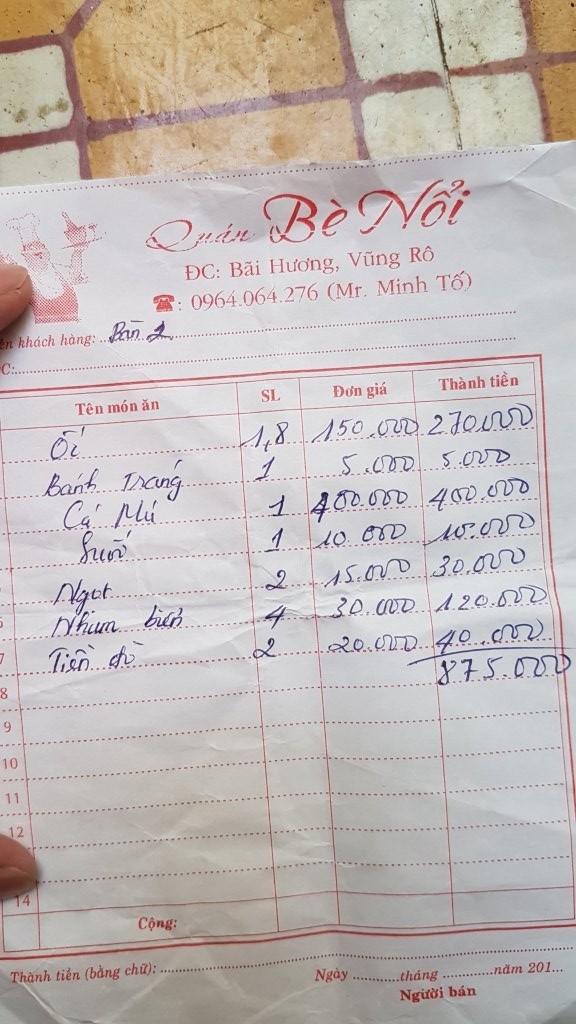 Quán Bè Nổi
ĐC: Bãi Hương, Vũng Rô
☎: 0964.064.276 (Mr. Minh Tố)
ên khách hàng: Bàn 2
C:
Tên món ăn SL Đơn giá Thành tiền
Ốc 1,8 150.000 270.000
Bánh Tráng 1 5.000 5.000
Cá Mú 1 400.000 400.000
Suối 1 10.000 10.000
Ngọt 2 15.000 30.000
6 Nhum biển 4 30.000 120.000
7 Tiền đò 2 20.000 40.000
8 875.000
9
10
11
12
14
Cộng:
Thành tiền (bằng chữ):
Ngày tháng năm 201...
Người bán